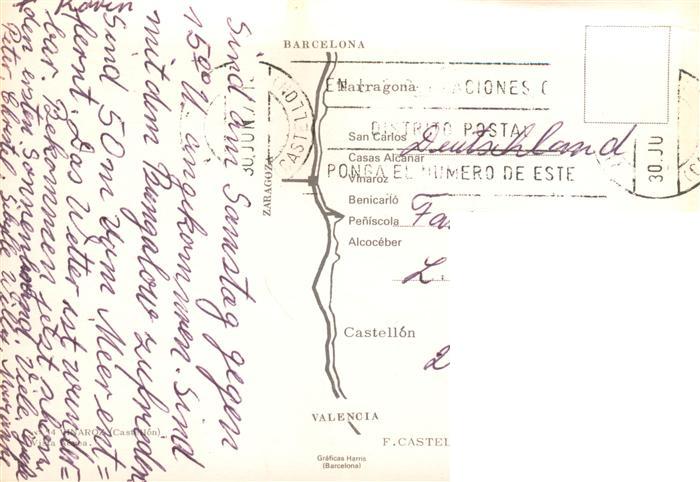 Sind am Samstag gegen
15⁰⁰ U angekommen. Sind
mit dem Bungalow zufrieden
Sind 50 m vom Meer ent=
fernt. Das Wetter ist wunder=
bar. Bekommen jetzt schon
den ersten Sonnenbrand. Viele
BARCELONA
Tarragona
San Carlos
Casas Alcanar
Vinaroz
Benicarló
Peñíscola
Alcocéber
ZARAGOZA
Castellón
VALENCIA
F. CASTEL
Gráficas Harris
(Barcelona)
VINAROZ (Castellón)
ACIONES
DISTRITO POSTAL
PONGA EL NUMERO DE ESTE
30 JUN
CASTELLO
30 JU
Deutschland
Fa
L.
2